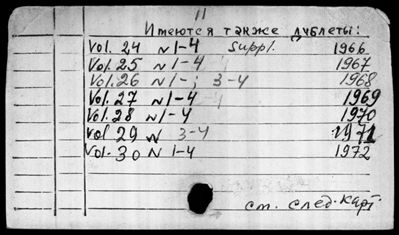 11
Имеются также дублеты:
Vol. 24 N 1-4 Suppl. 1966
Vol. 25 N 1-4 1967
Vol. 26 N 1-; 3-4 1968
Vol. 27 N 1-4 1969
Vol. 28 N 1-4 1970
Vol 29 N 3-4 1971
Vol. 30 N 1-4 1972
см. след. карт.